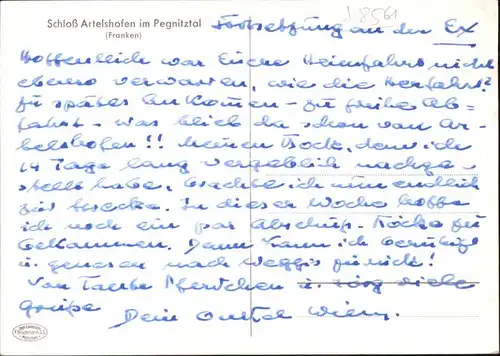 Schloß Artelshofen im Pegnitztal
(Franken)
d 8561
Fortsetzung an der Ex
Hoffentlich war Euere Heimfahrt nicht
ebenso verworren, wie die Herfahrt?
zu spätes Ankommen - zu frühe Ab=
fahrt - was blieb da schon von Ar-
telshofen!! Meinen Bock, dem ich
14 Tage lang vergeblich nachge-
stellt habe, brachte ich nun endlich
zur Strecke. In dieser Woche hoffe
ich noch ein par Abschuß-Böcke zu
bekommen. Dann kann ich beruhigt
u. genesen nach Weggis zurück!
Von Tante Pferdchen u. viele
Grüße
Dein Onkel